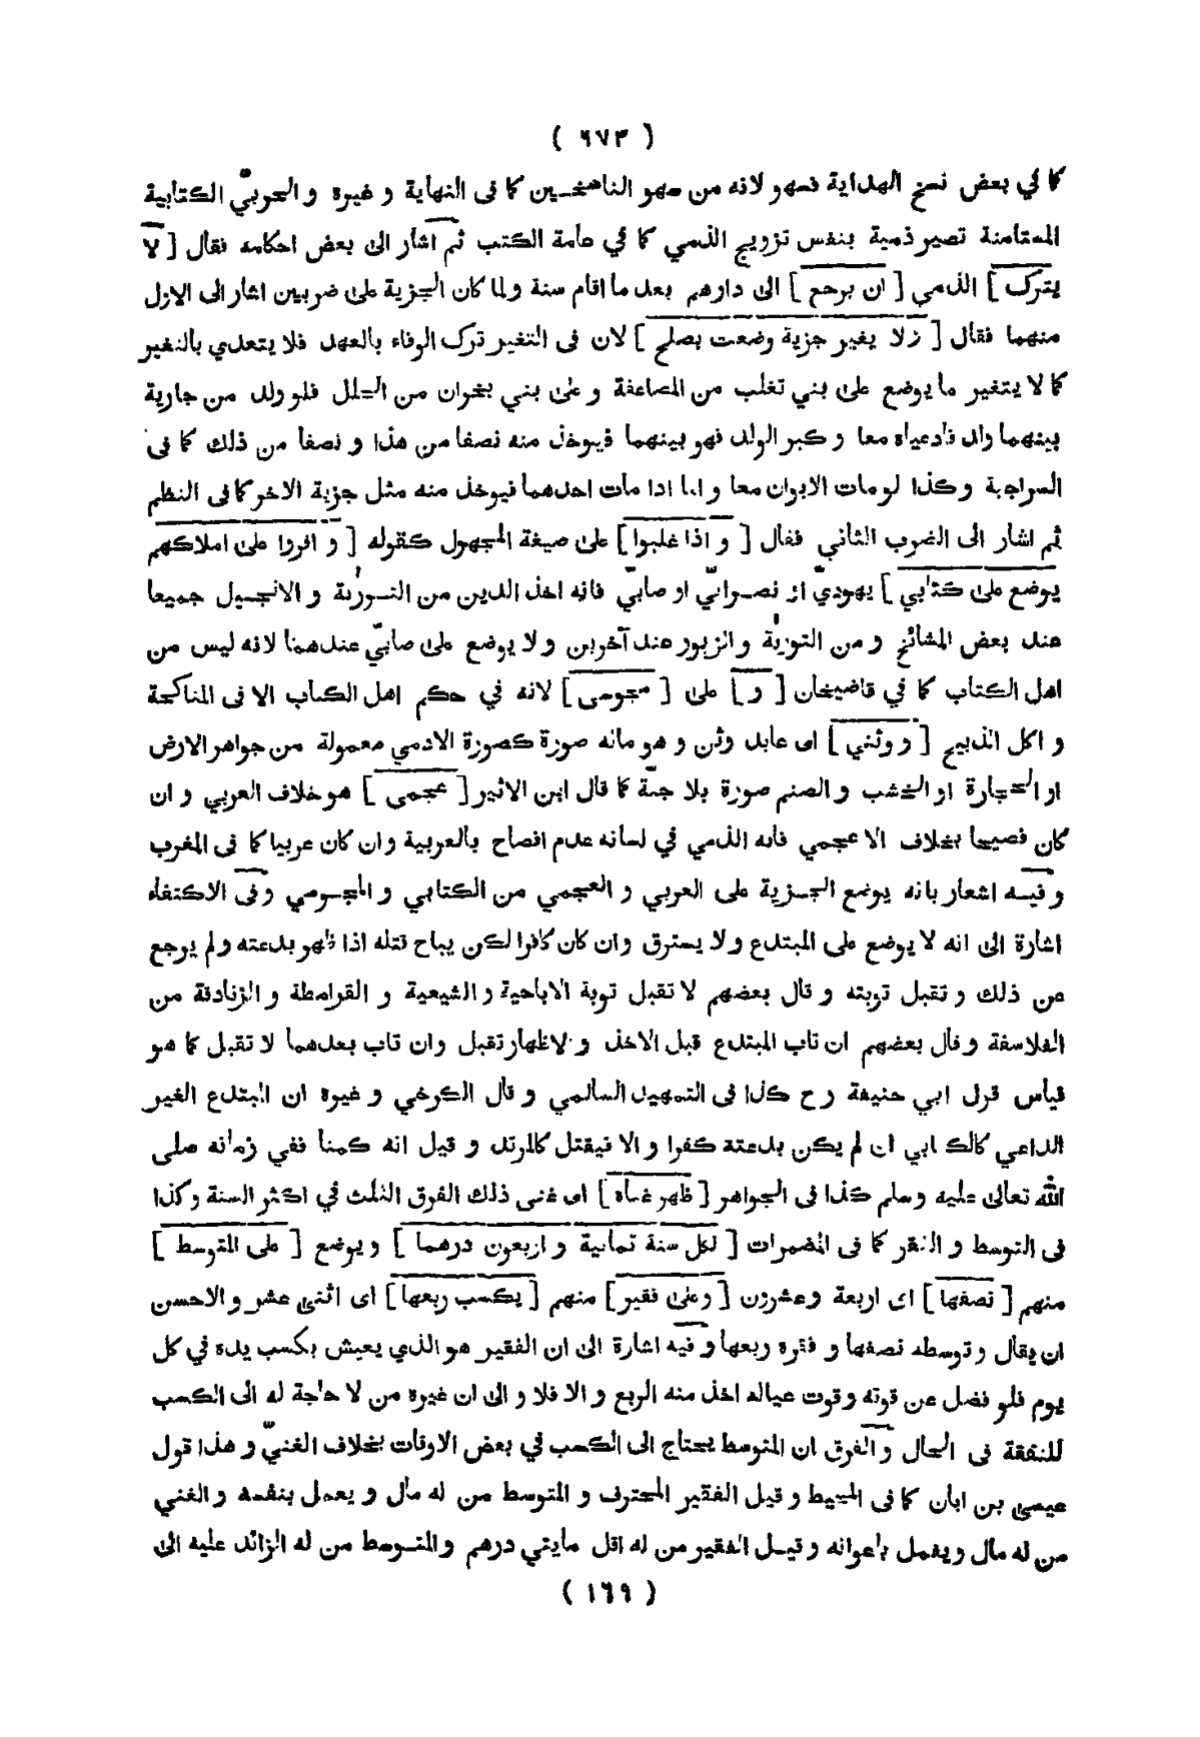 ( ٦٧٣ )
كما في بعض نسخ الهداية فسهو لانه من سهو الناسخين كما فى النهاية و غيره و الحربيّ الكتابية
المستامنة تصير ذمية بنفس تزويج الذمي كما في عامة الكتب ثم اشار الى بعض احكامه فقال [ لا
يترك ] الذمي [ ان يرجع ] الى دارهم بعد ما اقام سنة ولما كان الجزية على ضربين اشار الى الاول
منهما فقال [ ولا يغير جزية وضعت بصلح ] لان فى التغير ترك الوفاء بالعهد فلا يتعدي بالتغير
كما لا يتغير ما يوضع على بني تغلب من المضاعفة و على بني نجران من الحلل فلو ولد من جارية
بينهما ولد فادعياه معا و كبر الولد فهو بينهما فيوخذ منه نصفا من هذا و نصفا من ذلك كما فى
السراجية وكذا لو مات الابوان معا و اما اذا مات احدهما فيوخذ منه مثل جزية الاخر كما فى النظم
ثم اشار الى الضرب الثاني فقال [ و اذا غلبوا ] على صيغة المجهول كقوله [ و اقروا على املاكهم
يوضع على كتابي ] يهوديّ او نصرانيّ او صابيّ فانه اخذ الدين من التورٰىة و الانجيل جميعا
عند بعض المشائخ و من التورٰىة و الزبور عند آخرين و لا يوضع على صابيّ عندهما لانه ليس من
اهل الكتاب كما في قاضيخان [ و ] على [ مجوسى ] لانه في حكم اهل الكتاب الا فى المناكحة
و اكل الذبيح [ و وثني ] اى عابد وثن و هو ماله صورة كصورة الادمي معمولة من جواهر الارض
او الحجارة او الخشب و الصنم صورة بلا جثّة كما قال ابن الاثير [ عجمى ] هو خلاف العربي و ان
كان فصيحا بخلاف الاعجمي فانه الذمي في لسانه عدم افصاح بالعربية وان كان عربيا كما فى المغرب
و فيه اشعار بانه يوضع الجزية على العربي و العجمي من الكتابي و المجوسي وفى الاكتفاء
اشارة الى انه لا يوضع على المبتدع و لا يسترق وان كان كافرا لكن يباح قتله اذا ظهر بدعته ولم يرجع
عن ذلك و تقبل توبته و قال بعضهم لا تقبل توبة الاباحية و الشيعية و القرامطة و الزنادقة من
الفلاسفة و قال بعضهم ان تاب المبتدع قبل الاخذ و الاظهار تقبل وان تاب بعدهما لا تقبل كما هو
قياس قول ابي حنيفة رح كذا فى التمهيد السالمي و قال الكرخي و غيره ان المبتدع الغير
الداعي ان لم يكن بدعته كفرا و الا فيقتل كالمرتد و قيل انه كمنا ففي زمانه صلى
الله تعالى عليه وسلم كذا فى الجواهر [ ظهر غناه ] اى غنى ذلك الفرق الثلث في اكثر السنة وكذا
فى التوسط و الفقر كما فى المضمرات [ لكل سنة ثمانية و اربعون درهما ] و يوضع [ على المتوسط ]
منهم [ نصفها ] اى اربعة وعشرون [ وعلى فقير ] منهم [ يكسب ربعها ] اى اثنى عشر و الاحسن
ان يقال و توسطه نصفها و فقره ربعها و فيه اشارة الى ان الفقير هو الذي يعيش بكسب يده في كل
يوم فلو فضل عن قوته وقوت عياله اخذ منه الربع و الا فلا و الى ان غيره من لا حاجة له الى الكسب
للنفقة فى الحال و الفرق ان المتوسط يحتاج الى الكسب في بعض الاوقات بخلاف الغنيّ و هذا قول
عيسى بن ابان كما فى المحيط و قيل الفقير المحترف و المتوسط من له مال و يعمل بنفسه و الغني
من له مال و يعمل باعوانه و قيل الفقير من له اقل مايتي درهم و المتوسط من له الزائد عليه الى
( ١٦٩ )